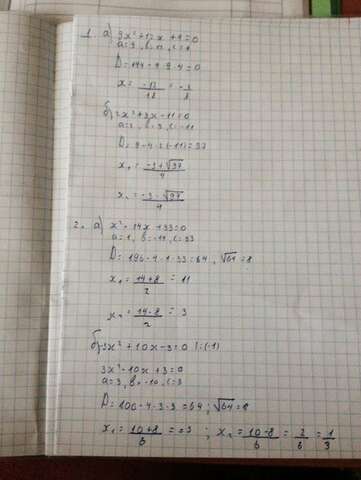 1. а) 9x² + 12x + 4 = 0
a = 9, b = 12, c = 4
D = 144 - 4·9·4 = 0
x = -12/18 =
б) 2x² + 3x - 11 = 0
a = 2, b = 3, c = -11
D = 9 - 4·2·(-11) = 97
x₁ = (-3 + √97)/4
x₂ = (-3 - √97)/4
2. а) x² - 14x + 33 = 0
a = 1, b = -14, c = 33
D = 196 - 4·1·33 = 64, √64 = 8
x₁ = (14 + 8)/2 = 11
x₂ = (14 - 8)/2 = 3
б) -3x² + 10x - 3 = 0 | : (-1)
3x² - 10x + 3 = 0
a = 3, b = -10, c = 3
D = 100 - 4·3·3 = 64; √64 = 8
x₁ = (10 + 8)/6 = 3 ; x₂ = (10 - 8)/6 = 2/6 = 1/3